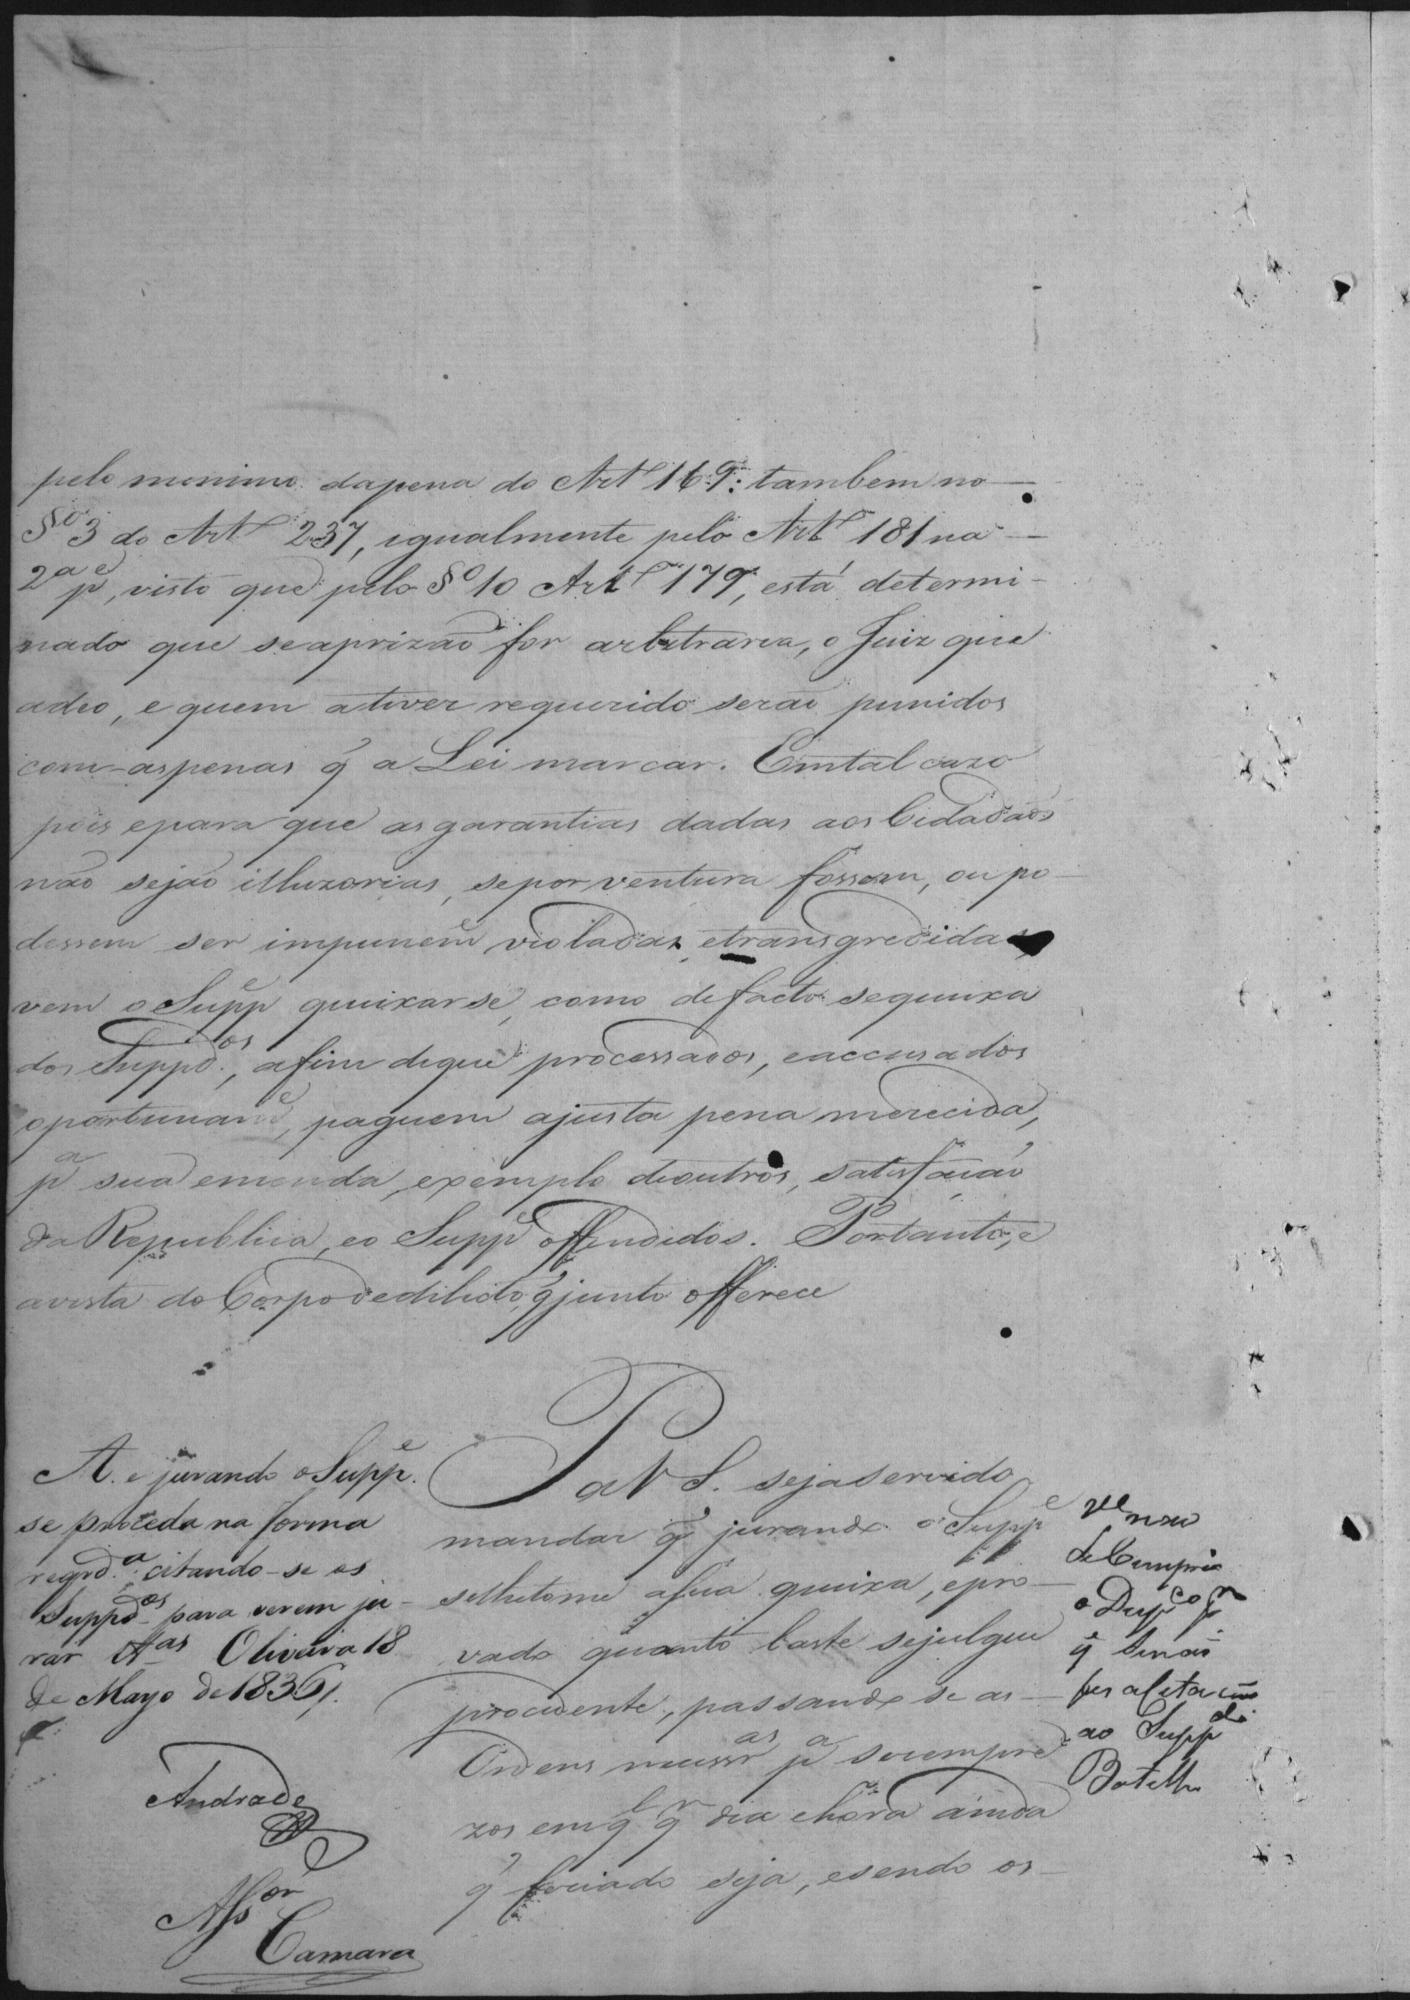 pelo menimo dapena do Art.º 169: tambem no
§º 3 do Art.º 237, igualmente pelo Art.º 181 na
2ª pe, visto que pelo §º 10 Art.º 179, está determi-
nado que seaprizão for arbitraria, o Juiz que
adeo, e quem ativer requerido serão punidos
com aspenas q̃ a Lei marcar. Emtal cazo
pois epara que asgarantias dadas aos Cidadãos
não sejão illuzorias, sepor ventura fossem, ou po-
dessem ser impunemᵉ violadas, etransgredidas
vem o Suppᵉ queixarse, como defacto sequeixa
dos Suppdᵒˢ, afim deque processados, eaccusados
oportunamᵉ, paguem ajusta pena merecida,
pª sua emenda, exemplo deoutros, satisfação
da Republica, eo Suppᵉ offendidos. Portanto, e
avista do Corpo dedelicto, q̃ junto offerece
P. a V S. seja servido
mandar q̃ jurando o Suppᵉ
selhetome asua queixa, epro-
vado quanto baste sejulgue
procedente, passando se as
Ordens necessrᵃˢ pª secompre-
zos em q̃ q̃ dia ehora ainda
q̃ feriado seja, esendo os
A. e jurando o Suppᵉ.
se proceda na forma
reqrdª. citando-se os
Suppdᵒˢ para verem ju-
rar Ttᵃˢ Oliveira 18
de Mayo de 1836.
Andrade
Assᵒʳ
Camara
o Despᶜᵒ
q̃ Senão
fes a citação
ao Suppᵈᵒ
Botelho